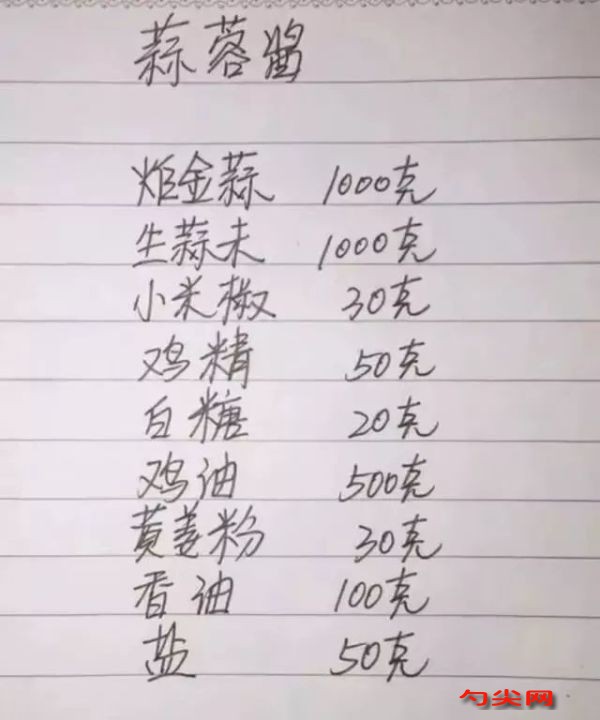 蒜蓉酱
炸金蒜 1000克
生蒜末 1000克
小米椒 30克
鸡精 50克
白糖 20克
鸡油 500克
黄姜粉 30克
香油 100克
盐 50克
勺尖网